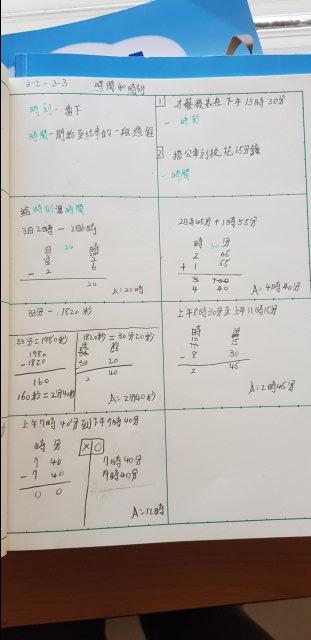 3-2-3-3 時間和時刻
時刻－當下
時間－開始至結束的一段過程
1 才藝發表在下午13時30分
－時刻
2 搭公車到校花15分鐘
－時間
給時刻算時間
3日2時 － 2日6時
日 24 時
－ 2 6
20
A=20時
2時45分+1時55分
時 60 分
2 45
+ 1 55
3 100
4 40
A=4時40分
33分－1820秒
33分=1980秒
1980
－1820
160
160秒=2分40秒
1820秒=30分20秒
30 20
2 40
A=2分40秒
上午8時30分至上午11時15分
時 分
10
11 15
－ 8 30
2 45
A=2時45分
上午7時40分到下午7時40分
時 分
7 40
－ 7 40
0 0
X O
7時40分
19時40分
A=12時